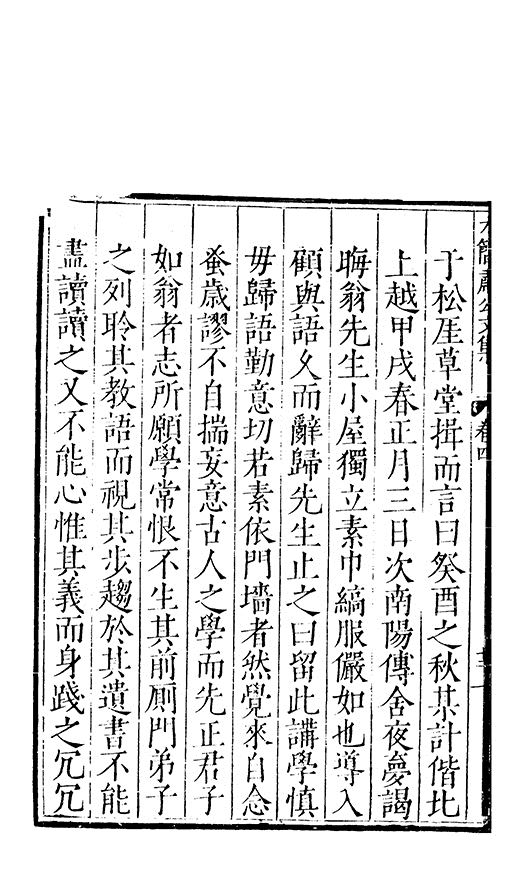 方簡肅公文集
卷四
十一
于松厓草堂揖而言曰癸酉之秋某計偕北
上越甲戌春正月三日次南陽傳舍夜夢謁
晦翁先生小屋獨立素巾縞服儼如也導入
顧與語久而辭歸先生止之曰留此講學慎
毋歸語勤意切若素依門墻者然覺來自念
蚤歲謬不自揣妄意古人之學而先正君子
如翁者志所願學常恨不生其前厠門弟子
之列聆其教語而視其步趨於其遺書不能
盡讀讀之又不能心惟其義而身踐之冗冗